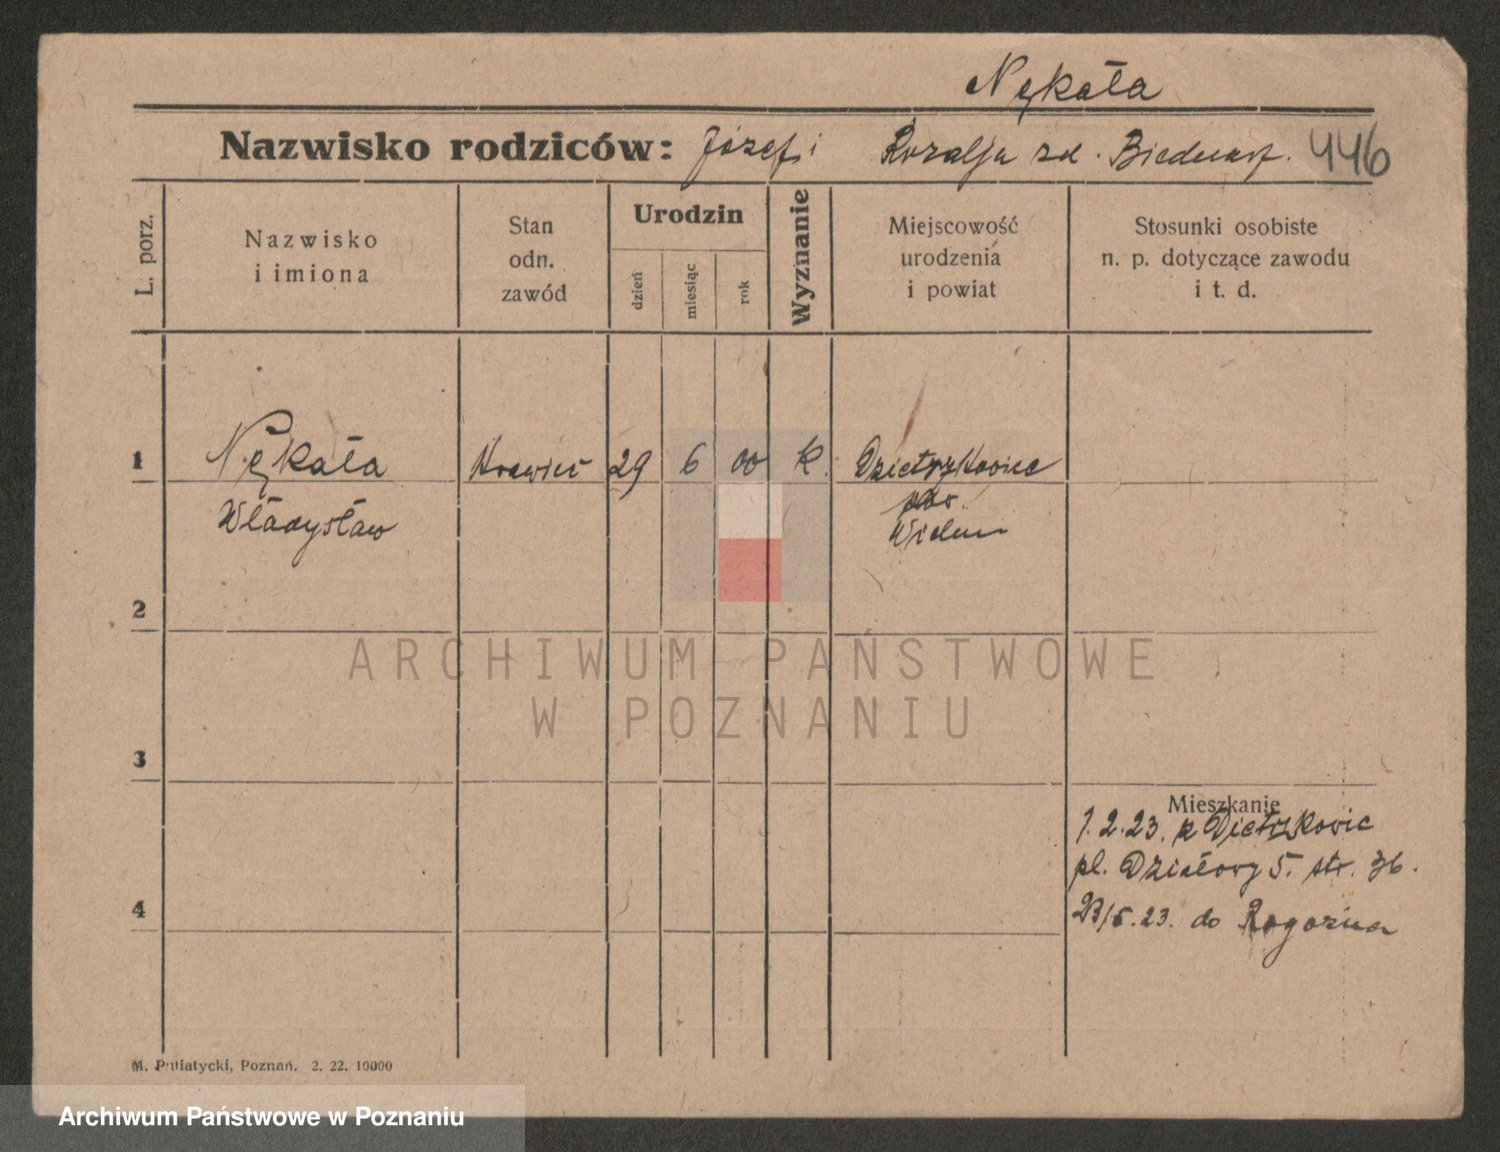 Nękała
Nazwisko rodziców: Józef i Rozalja zd. 446
L. porz.
Nazwisko
i imiona
Stan
odn.
zawód
Urodzin
dzień
miesiąc
rok
Wyznanie
Miejscowość
urodzenia
i powiat
Stosunki osobiste
n. p. dotyczące zawodu
i t. d.
1 Nękała Krawiec 29 6 00 k Dzietrzkowice
Władysław pow.
Wieluń
2
ARCHIWUM PAŃSTWOWE
W POZNANIU
3
Mieszkanie
1.2.23. z Dietrzkowic
pl. Działowy 5. str. 36.
4
23/5.23. do Rogoźna
M. Putiatycki, Poznań. 2. 22. 10000
Archiwum Państwowe w Poznaniu